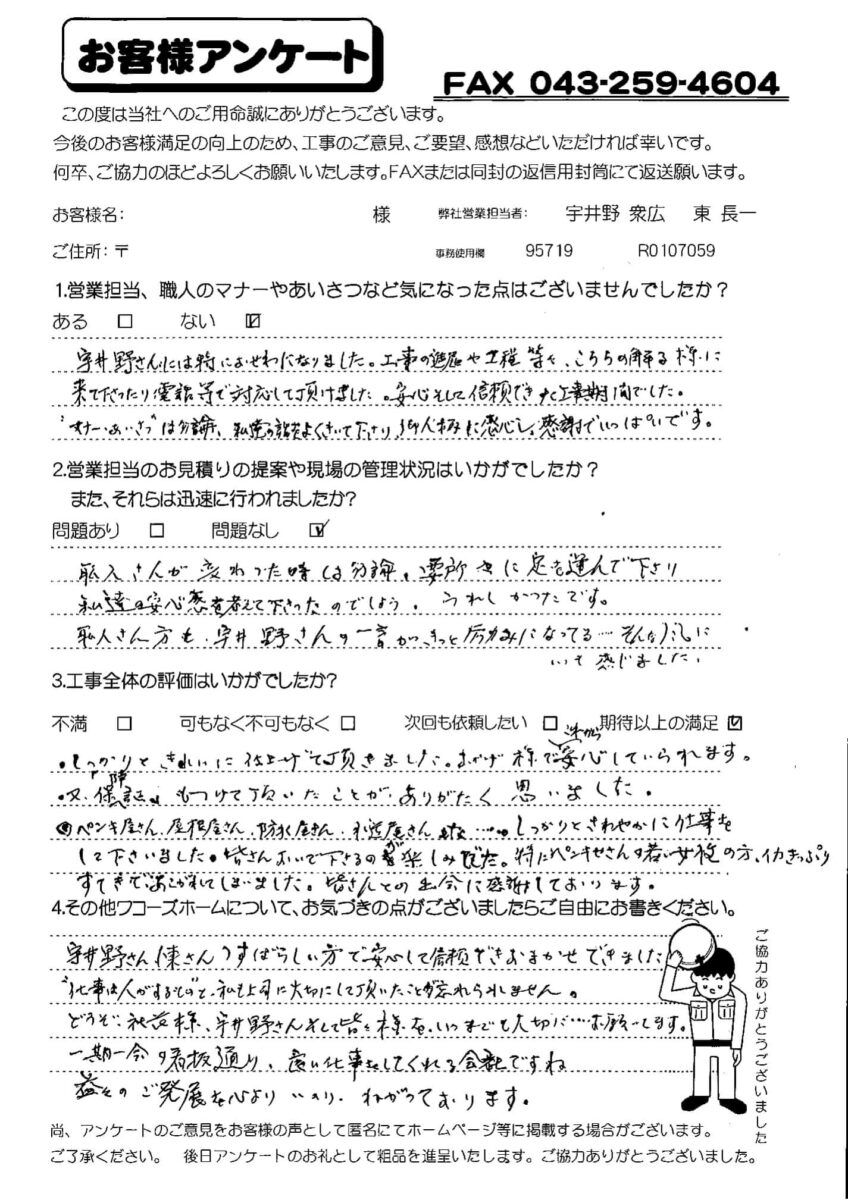 お客様アンケート
FAX 043-259-4604
この度は当社へのご用命誠にありがとうございます。
今後のお客様満足の向上のため、工事のご意見、ご要望、感想などいただければ幸いです。
何卒、ご協力のほどよろしくお願いいたします。FAXまたは同封の返信用封筒にて返送願います。
お客様名: 様 弊社営業担当者: 宇井野 衆広 東 長一
ご住所:〒 事務使用欄 95719 R0107059
1.営業担当、職人のマナーやあいさつなど気になった点はございませんでしたか?
ある □ ない ☑
宇井野さんには特におせわになりました。工事の進展や工程等々、こちらの解る様に
来て下さったり電話等で対応して頂けました。安心そして信頼できた工事期間でした。
"マナー・あいさつ"は勿論、私達の話をよくきいて下さり お人柄に感心し、感謝でいっぱいです。
2.営業担当のお見積りの提案や現場の管理状況はいかがでしたか?
また、それらは迅速に行われましたか?
問題あり □ 問題なし ☑
職人さんが変わった時は勿論、要所々に足を運んで下さり
私達の安心感を考えて下さったのでしょう。うれしかったです。
職人さん方も、宇井野さんの一言がきっと励みになってる…そんな風に
いつも感じました。
3.工事全体の評価はいかがでしたか?
不満 □ 可もなく不可もなく □ 次回も依頼したい □ 期待以上の満足 ☑
・しっかりときれいに仕上げて頂きました。おかげ様でこれから安心していられます。
・又、「保証」もつけて頂いたことが、ありがたく思いました。
◎ペンキ屋さん、屋根屋さん、防水屋さん、 しっかりとさわやかに仕事を
して下さいました。皆さんおいで下さるのが楽しみでした。特にペンキやさんの若い女性の方、イカきっぷり
すてきであこがれてしまいました。皆さんとの出会に感謝しております。
4.その他ワコーズホームについて、お気づきの点がございましたらご自由にお書きください。
宇井野さん 東さん すばらしい方で安心して信頼できおまかせできました
"仕事は人がするもの"と、私も上司に大切にして頂いたことが忘れられません。
どうぞ、社長様、宇井野さんそして皆々様を、いつまでも大切に…お願いします。
一期一会の看板通り、良い仕事をしてくれる会社ですね
益々のご発展を心より いのり、ねがっております。
ご協力ありがとうございました
尚、アンケートのご意見をお客様の声として匿名にてホームページ等に掲載する場合がございます。
ご了承ください。 後日アンケートのお礼として粗品を進呈いたします。ご協力ありがとうございました。